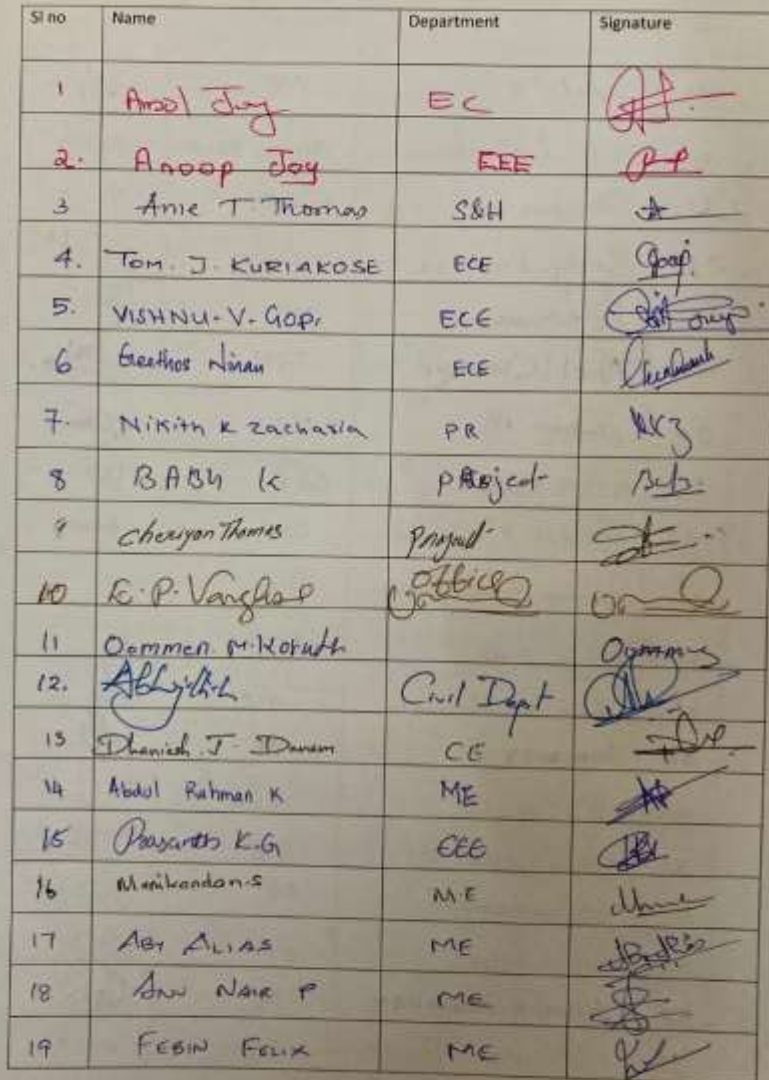 Sl no Name Department Signature
1 Ansol Joy EC
2. Anoop Joy EEE
3 Anie T Thomas S&H
4. TOM. J. KURIAKOSE ECE
5. VISHNU-V-GOPI ECE
6 Geethos Ninan ECE
7. Nikith K Zacharia PR NKZ
8 BABU K PRoject
9 Cheriyan Thomas Project
10 E.P. Varghese Office
11 Oommen M. Koruth
12. Abhijith Civil Dept
13 Dhaniesh J CE
14 Abdul Rahman K ME
15 Prasanth K.G EEE
16 Manikandan.S M.E
17 ABY ALIAS ME
18 ANU NAIR P ME
19 FEBIN FELIX ME